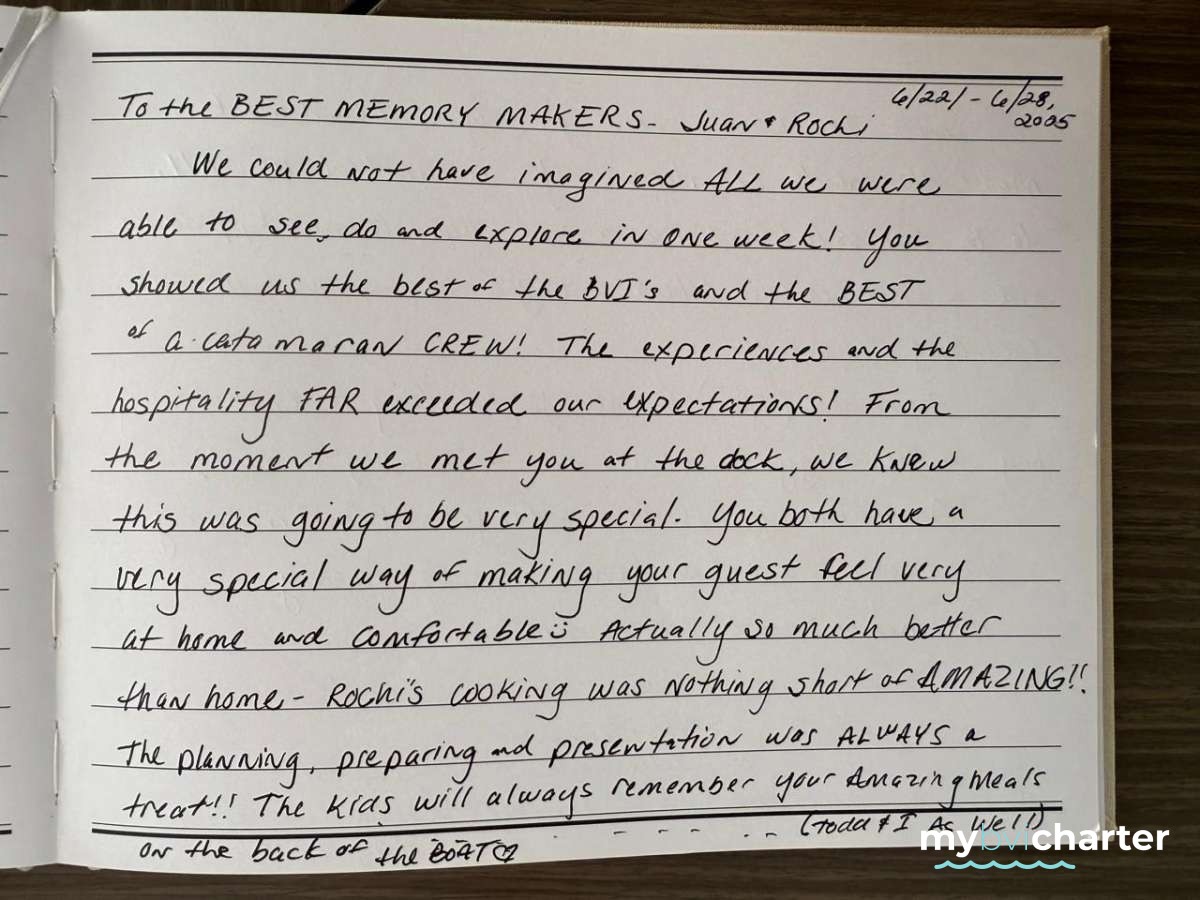 6/22/ - 6/28,
2025
To the BEST MEMORY MAKERS - Juan & Rochi
We could not have imagined ALL we were
able to see, do and explore in one week! You
showed us the best of the BVI's and the BEST
of a catamaran CREW! The experiences and the
hospitality FAR exceeded our expectations! From
the moment we met you at the dock, we knew
this was going to be very special. You both have a
very special way of making your guest feel very
at home and comfortable Actually so much better
than home - Rochi's cooking was nothing short of AMAZING!!
The planning, preparing and presentation was ALWAYS a
treat!! The kids will always remember your Amazing Meals
(Todd & I As Well!)
on the back of the BOAT♡
mybvicharter